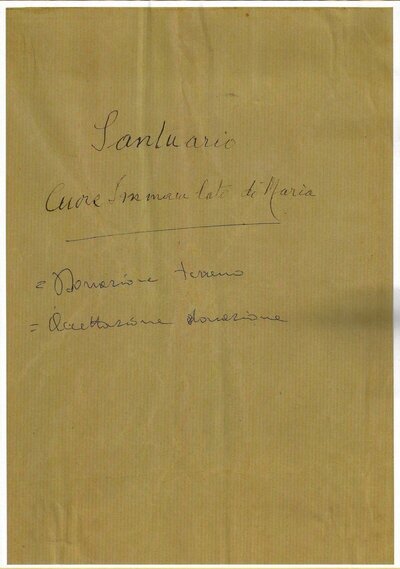 Santuario
Cuore Immaculato di Maria
= Donazione terreno
= Accettazione donazione